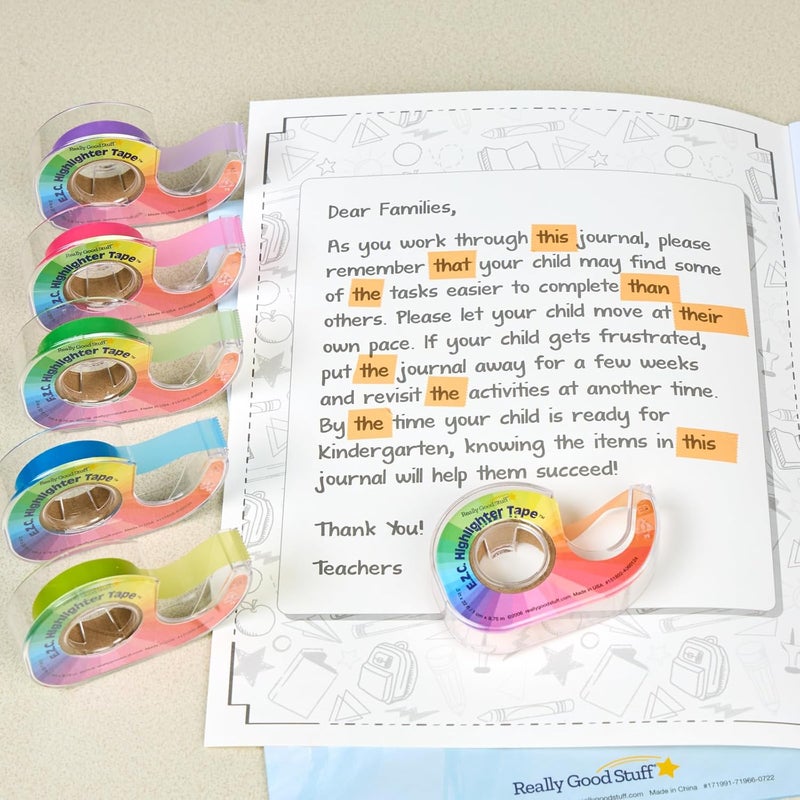 Really Good Stuff
E.Z.C. Highlighter Tape™
Really Good Stuff
E.Z.C. Highlighter Tape™
Really Good Stuff
E.Z.C. Highlighter Tape™
Really Good Stuff
E.Z.C. Highlighter Tape™
E.Z.C. Highlighter Tape™
Dear Families,
As you work through this journal, please
remember that your child may find some
of the tasks easier to complete than
others. Please let your child move at their
own pace. If your child gets frustrated,
put the journal away for a few weeks
and revisit the activities at another time.
By the time your child is ready for
Kindergarten, knowing the items in this
journal will help them succeed!
Thank You!
Teachers
Really Good Stuff
E.Z.C. Highlighter Tape™
©2006 reallygoodstuff.com Made in USA
Really Good Stuff
Made in China #171991-71966-0722